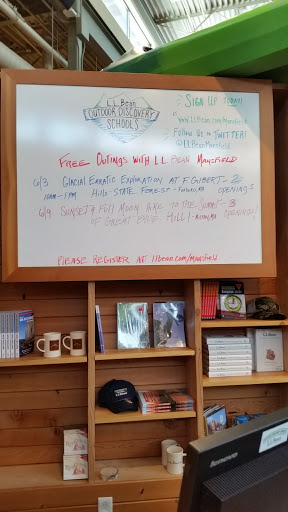 L.L.Bean
OUTDOOR DISCOVERY
SCHOOLS
SIGN UP TODAY!
www.LLBean.com/Mansfield
Follow Us on TWITTER!
@LLBeanMansfield
FREE OUTINGS WITH L.L. BEAN MANSFIELD
6/3 GLACIAL ERRATIC EXPLORATION AT F. GILBERT - 2
10AM - 1PM HILLS STATE FOREST - FOXBORO, MA OPENINGS
6/9 SUNSET & FULL MOON HIKE TO THE SUMMIT - 3
OF GREAT BLUE HILL! - MILTON, MA OPENINGS!
PLEASE REGISTER AT llbean.com/mansfield
lenovo
L.L.Bean